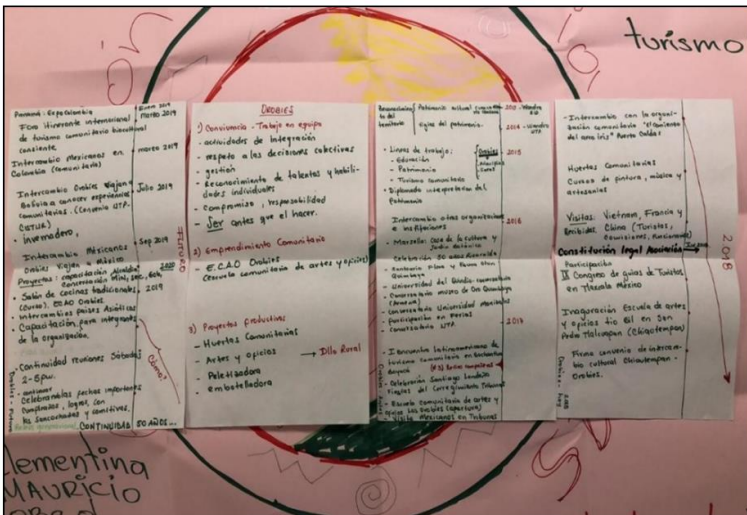 turismo
Panamá: Expocolombia
Enero 2019
Foro itinerante internacional
marzo 2019
de turismo comunitario biocultural
consciente.
Intercambio Mexicanos en
marzo 2019
Colombia (comunitario)
Intercambio Orobíes Viajan a
Julio 2019
Bolivia a conocer experiencias
comunitarias. (Convenio UTP.
• Invernadero,
Intercambio Mexicanos
Sep 2019
Orobíes Viajan a México
Proyectos: capacitación Alcaldía
2020
• Salón de cocinas tradicionales, 2019
(Curso). ECAO Orobíes.
• Intercambios países Asiáticos
• Capacitación para integrantes
de la organización.
• Continuidad reuniones Sábados
2-5 p.m.
Celebran las fechas importantes
cumpleaños, logros, con
CONTINUIDAD 50 AÑOS...
"Clama"
FUTURO
OROBIES
1) Convivencia - Trabajo en equipo
- actividades de integración
- respeto a las decisiones colectivas
- gestión
- Reconocimiento de talentos y habili-
dades individuales
- Compromiso, responsabilidad
- Ser antes que el hacer.
2) Emprendimiento Comunitario
- E.C.A.O Orobíes
(escuela comunitaria de artes y oficios)
3) Proyectos productivos
- Huertas Comunitarias
- Artes y oficios → Dllo Rural
- Peletizadora
- embotelladora
Reconocimien
to del
territorio
Patrimonio cultural
2013
Vigías del patrimonio.
2014
UTP
• Lineas de trabajo:
2015
- Educación
- Patrimonio
- Turismo comunitario
Orobíes
• Diplomado interpretación del
Patrimonio
Intercambio otras organizaciones
e instituciones
2016
• Marsella: Casa de la cultura y
Jardín botánico
Celebración 50 años Risaralda
• Centenario Flora y Fauna Otun
Quimbaya
• Universidad del Quindío-conversatorio
• Conversatorio museo de Oro Quimbaya
(Armenia)
• Conversatorio Universidad Manizales
• Participación en Ferias
• Conversatorio UTP.
2017
I Encuentro latinoamericano de
turismo comunitario en Cochabamba
• Celebración Santiago Londoño
Fiestas del Corregimiento Tribunas
• Escuela Comunitaria de artes y
oficios Los Orobíes (apertura)
• Visita Mexicanos en Tribunas
- Intercambio con la organi-
zación comunitaria "el camino
del arco iris" Puerto Caldas
Huertas Comunitarias
Cursos de pintura, música y
artesanías
Visitas: Vietnam, Francia y
Recibidas: China (Turistas,
Comisiones, Mexicanos)
Constitución legal Asociación
2018
Participación
IX Congreso de guías de Turistas
en Tlaxcala México
Inauguración Escuela de artes
y oficios tío Gil en San
Pedro Tlalcuapan (Chiautempan)
Firma convenio de intercam-
bio cultural Chiautempan -
Orobíes.
Clementina
MAURICIO